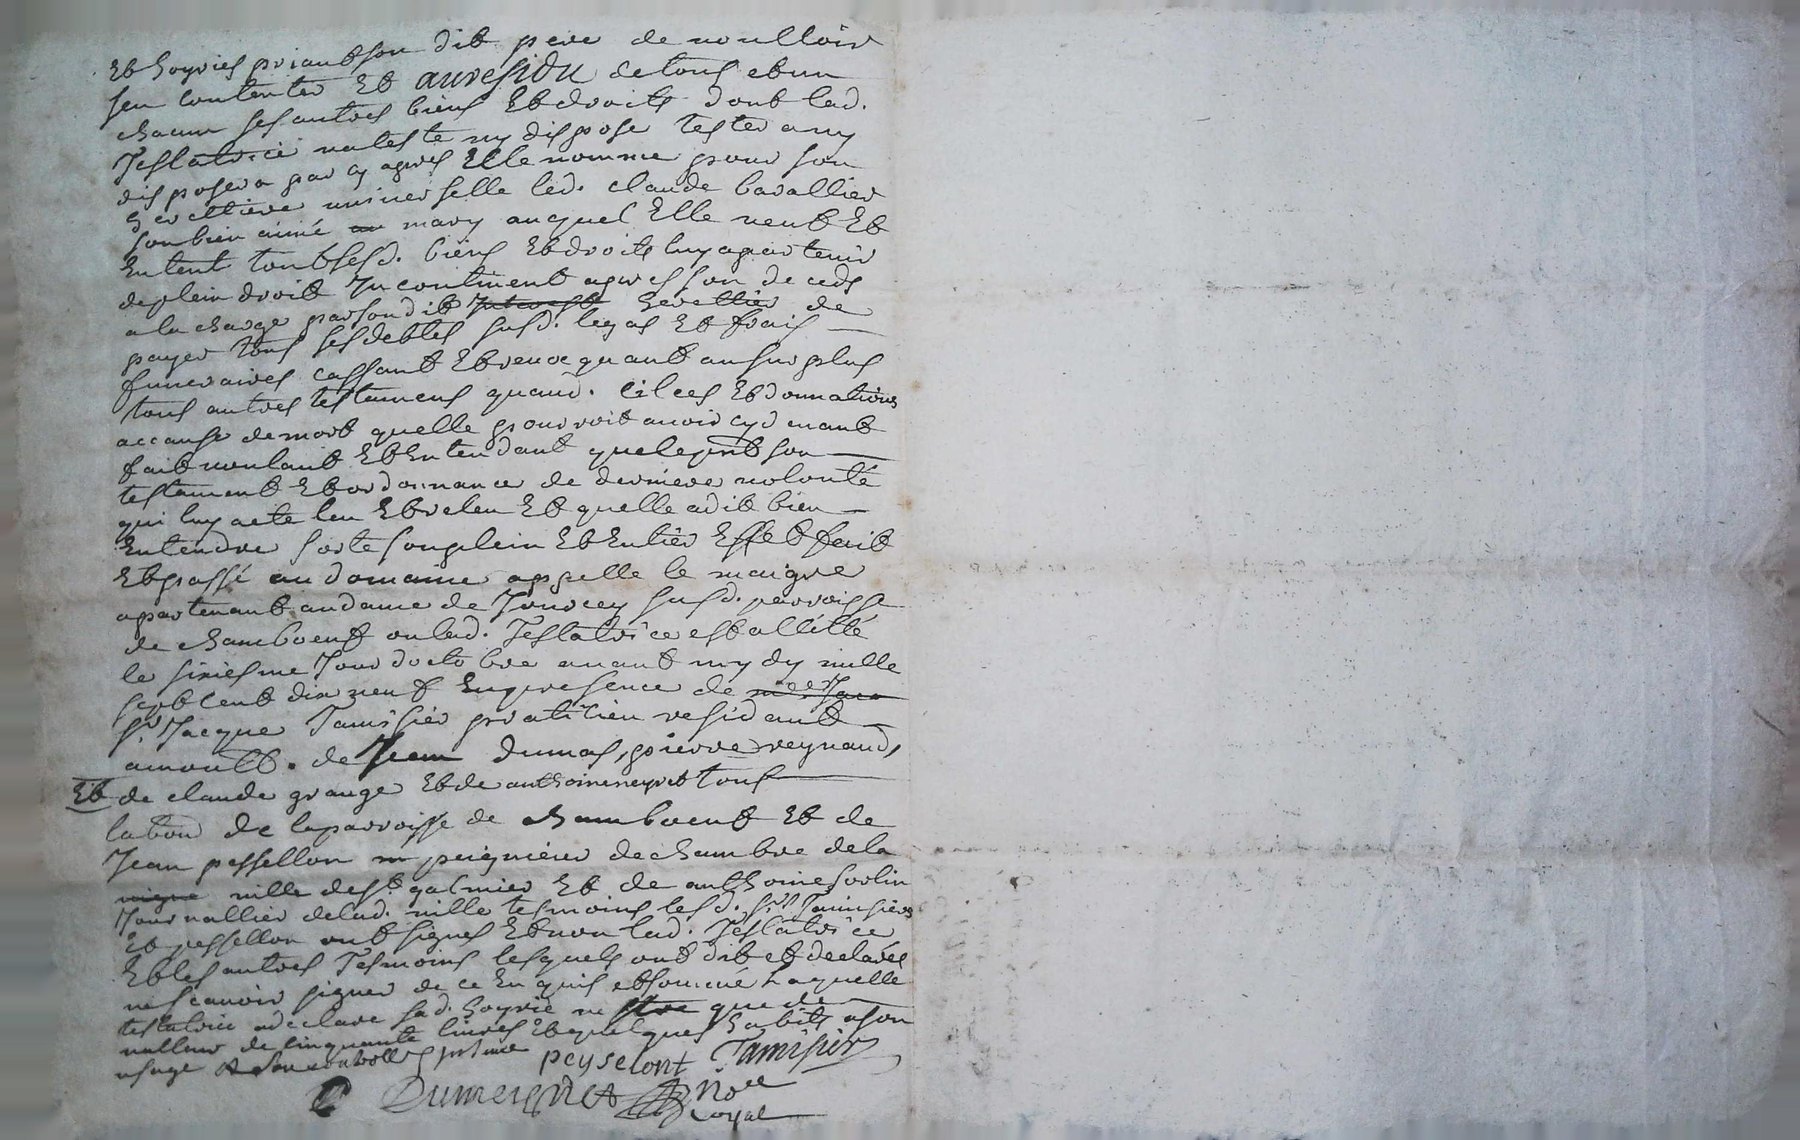 Et hoyries priant son dit pere de voulloir
sen contenter Et au residu de tous et un
chacun ses autres biens Et droits dont lad.
Testatrice na teste ny dispose tester a ny
disposera par cy apres Elle nomme pour son
heretiere universelle led. claude Cavallier
son bien aimé mary auquel Elle veut Et
Entent toutsesd. biens Et droits luy apartenir
de plein droit Incontinent apres son deceds
a la charge par son dit heretier de
payer tous ses debtes susd. legas Et frais
funeraires cassant Et revocquant au surplus
tous autres testamens quaud. cilces Et donnations
accause de mort quelle pourroit avoir cyd evant
fait voulant Et Entendant que le pnt son
testament Et ordonnance de derniere volonté
qui luy aete leu Et releu Et quelle a dit bien
Entendre sorte son plein Et Entier Effet fait
Et passé au domaine appelle le maigre
apartenant audame de Jourcey susd. parroisse
de chambœuf ou lad. Testatrice est allittée
le sixiesme Jour doctobre avant mydy mille
sept cent dix neuf En presence de
sr. Jacque Tamisier praticien residant
a montb. de Jean dumas, pierre reynaud,
Et de claude grange Et de anthoine neyret tous
labour de la parroisse de chambœuf Et de
Jean pessellon peignieur de chambre de la
ville de st. galmier Et de anthoine sorlin
Journallier delad. ville tesmoins lesd. srs. Tamisier
Et pessellon ont signes Et non lad. Testatrice
Et les autres Tesmoins lesquels ont dit et declarés
ne scavoir signer de ce Enquis et sommé Laquelle
testatrice a declare sad. hoyrie ne estre que de
valleur de cinquante livres Et quelques habits a son
usage
peyselont Tamisier
Dumeignet Nore
Royal